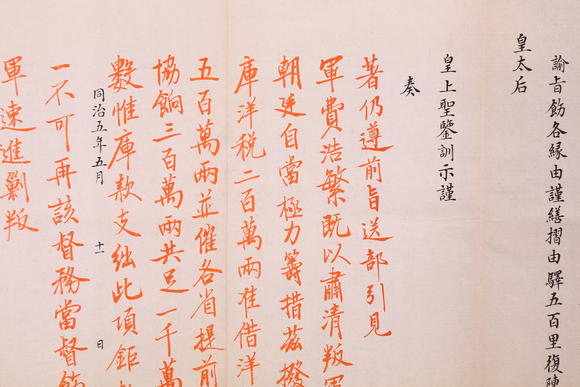 諭旨飭各緣由謹繕摺由驛五百里復陳
皇太后
皇上聖鑒訓示謹
奏
著仍遵前旨送部引見
軍費浩繁既以肅清叛軍
朝廷自當極力籌措茲撥
庫洋稅二百萬兩准借洋
五百萬兩並催各省提前
協餉三百萬兩共足一千萬
數惟庫款支絀此項鉅
同治五年五月 十一 日
一不可再該督務當督飭
軍速進剿叛